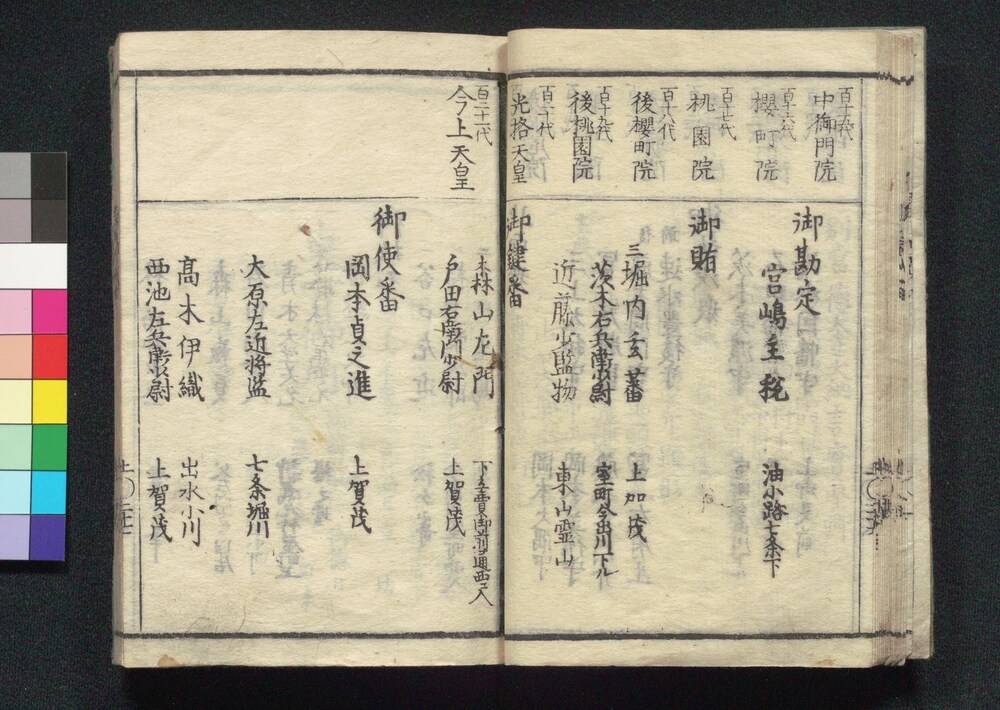 百十五代
中御門院
百十六代
櫻町院
百十七代
桃園院
百十八代
後櫻町院
百十九代
後桃園院
百二十代
光格天皇
百二十一代
今上天皇
御勘定
宮嶋主税 油小路七条下
御賄
三堀内玄蕃 上加茂
茨木右兵衛少尉 室町今出川下ル
近藤少監物 東山霊山
御鍵番
森山左門 下立賣御前通西入
戸田右衛門少尉 上賀茂
御使番
岡本貞之進 上賀茂
大原左近将監 七条堀川
髙木伊織 出水小川
西池左兵衛少尉 上賀茂